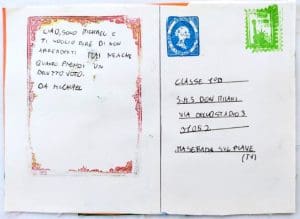 CIAO, SONO MICHAEL E
TI VOGLIO DIRE DI NON
ARRENDERTI MAI NEANCHE
QUANDO PRENDI UN
BRUTTO VOTO.
DA MICHAEL
CLASSE 1ªD
S.M.S DON MILANI
VIA DELLO STADIO 3
31052
MASERADA SUL PIAVE
(TV)